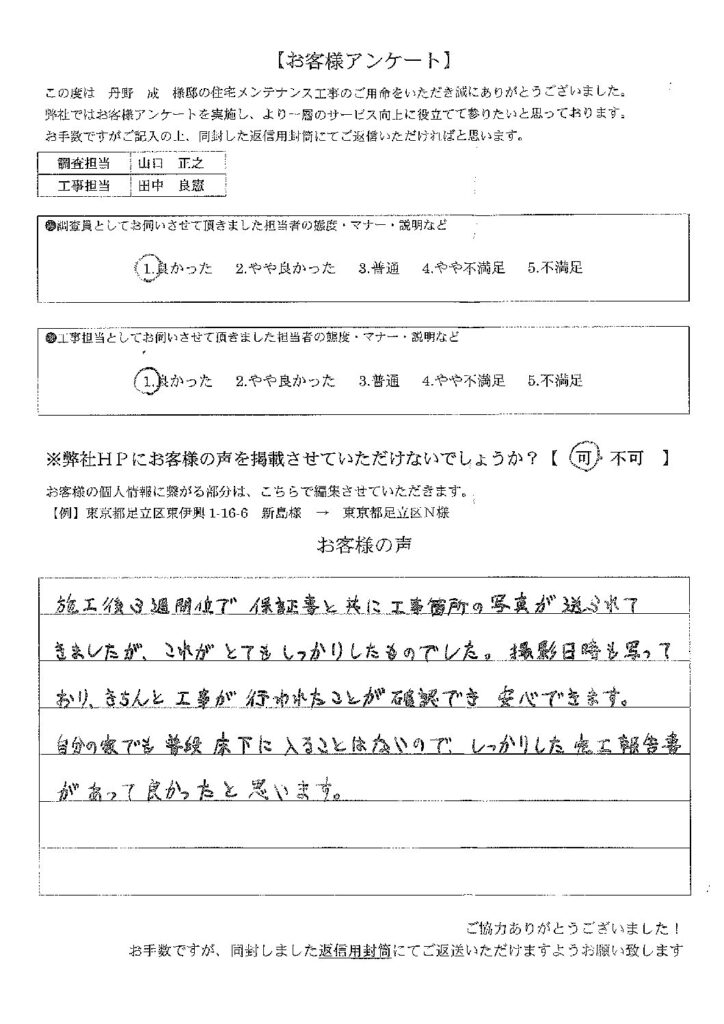 【お客様アンケート】
この度は　丹野　成　様邸の住宅メンテナンス工事のご用命をいただき誠にありがとうございました。
弊社ではお客様アンケートを実施し、より一層のサービス向上に役立てて参りたいと思っております。
お手数ですがご記入の上、同封した返信用封筒にてご返信いただければと思います。
調査担当　山口　正之
工事担当　田中　良憲
●調査員としてお伺いさせて頂きました担当者の態度・マナー・説明など
1.良かった　2.やや良かった　3.普通　4.やや不満足　5.不満足
●工事担当としてお伺いさせて頂きました担当者の態度・マナー・説明など
1.良かった　2.やや良かった　3.普通　4.やや不満足　5.不満足
※弊社HPにお客様の声を掲載させていただけないでしょうか？【　可・不可　】
お客様の個人情報に繋がる部分は、こちらで編集させていただきます。
【例】東京都足立区東伊興1-16-6　新島様　→　東京都足立区N様
お客様の声
施工後3週間位で 保証書と共に工事箇所の写真が送られて
きましたが、これがとてもしっかりしたものでした。撮影日時も写って
おり、きちんと工事が行われたことが確認でき 安心できます。
自分の家でも普段床下に入ることはないので、しっかりした完工報告書
があって良かったと思います。
ご協力ありがとうございました！
お手数ですが、同封しました返信用封筒にてご返送いただけますようお願い致します